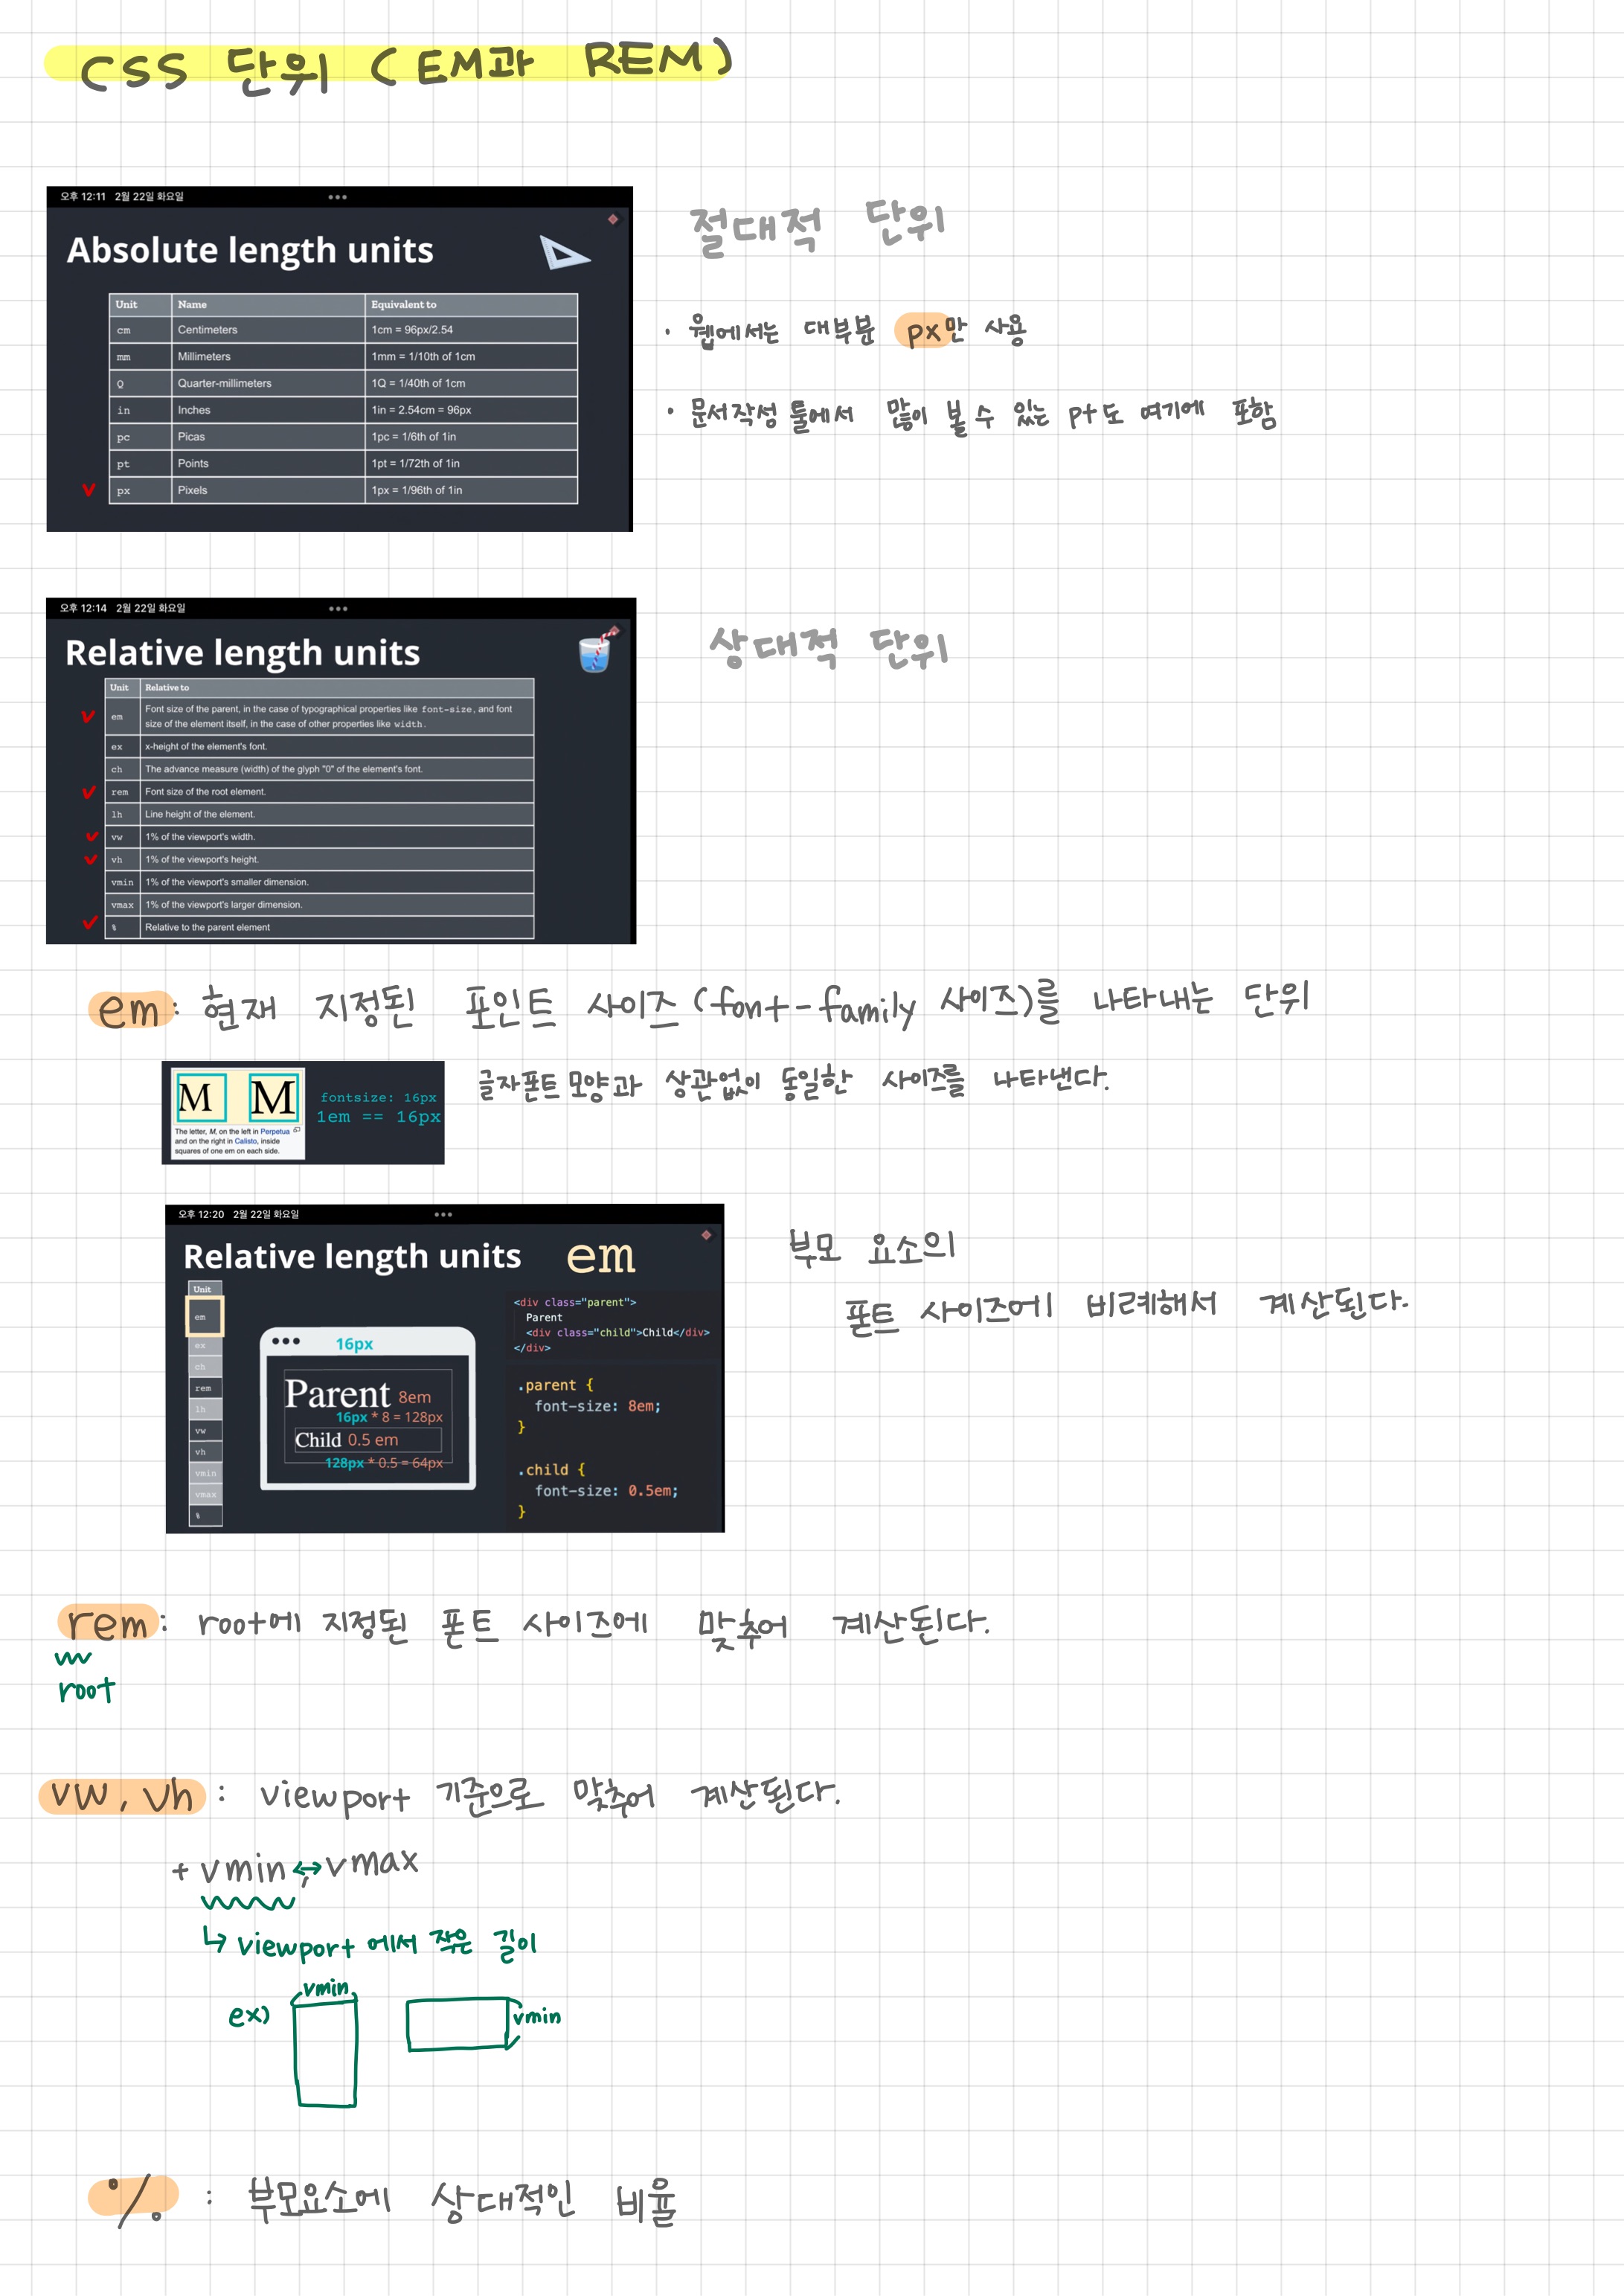 CSS 단위 (EM과 REM)
오후 12:11 2월 22일 화요일
Absolute length units
Unit Name Equivalent to
cm Centimeters 1cm = 96px/2.54
mm Millimeters 1mm = 1/10th of 1cm
Q Quarter-millimeters 1Q = 1/40th of 1cm
in Inches 1in = 2.54cm = 96px
pc Picas 1pc = 1/6th of 1in
pt Points 1pt = 1/72th of 1in
px Pixels 1px = 1/96th of 1in
절대적 단위
· 웹에서는 대부분 px만 사용
· 문서작성 툴에서 많이 볼 수 있는 pt도 여기에 포함
오후 12:14 2월 22일 화요일
Relative length units
Unit Relative to
em Font size of the parent, in the case of typographical properties like font-size, and font
size of the element itself, in the case of other properties like width.
ex x-height of the element's font.
ch The advance measure (width) of the glyph "0" of the element's font.
rem Font size of the root element.
lh Line height of the element.
vw 1% of the viewport's width.
vh 1% of the viewport's height.
vmin 1% of the viewport's smaller dimension.
vmax 1% of the viewport's larger dimension.
% Relative to the parent element
상대적 단위
em : 현재 지정된 포인트 사이즈 (font-family 사이즈)를 나타내는 단위
M M
The letter, M, on the left in Perpetua
and on the right in Calisto, inside
squares of one em on each side.
fontsize: 16px
1em == 16px
글자폰트 모양과 상관없이 동일한 사이즈를 나타낸다.
오후 12:20 2월 22일 화요일
Relative length units em
Unit
em
ex
ch
rem
lh
vw
vh
vmin
vmax
%
16px
Parent 8em
16px * 8 = 128px
Child 0.5 em
128px * 0.5 = 64px
<div class="parent">
Parent
<div class="child">Child</div>
</div>
.parent {
font-size: 8em;
}
.child {
font-size: 0.5em;
}
부모 요소의
폰트 사이즈에 비례해서 계산된다.
rem : root에 지정된 폰트 사이즈에 맞추어 계산된다.
root
vw, vh : viewport 기준으로 맞추어 계산된다.
+ vmin ↔, vmax
↳ viewport 에서 작은 길이
ex) vmin vmin
% : 부모요소에 상대적인 비율